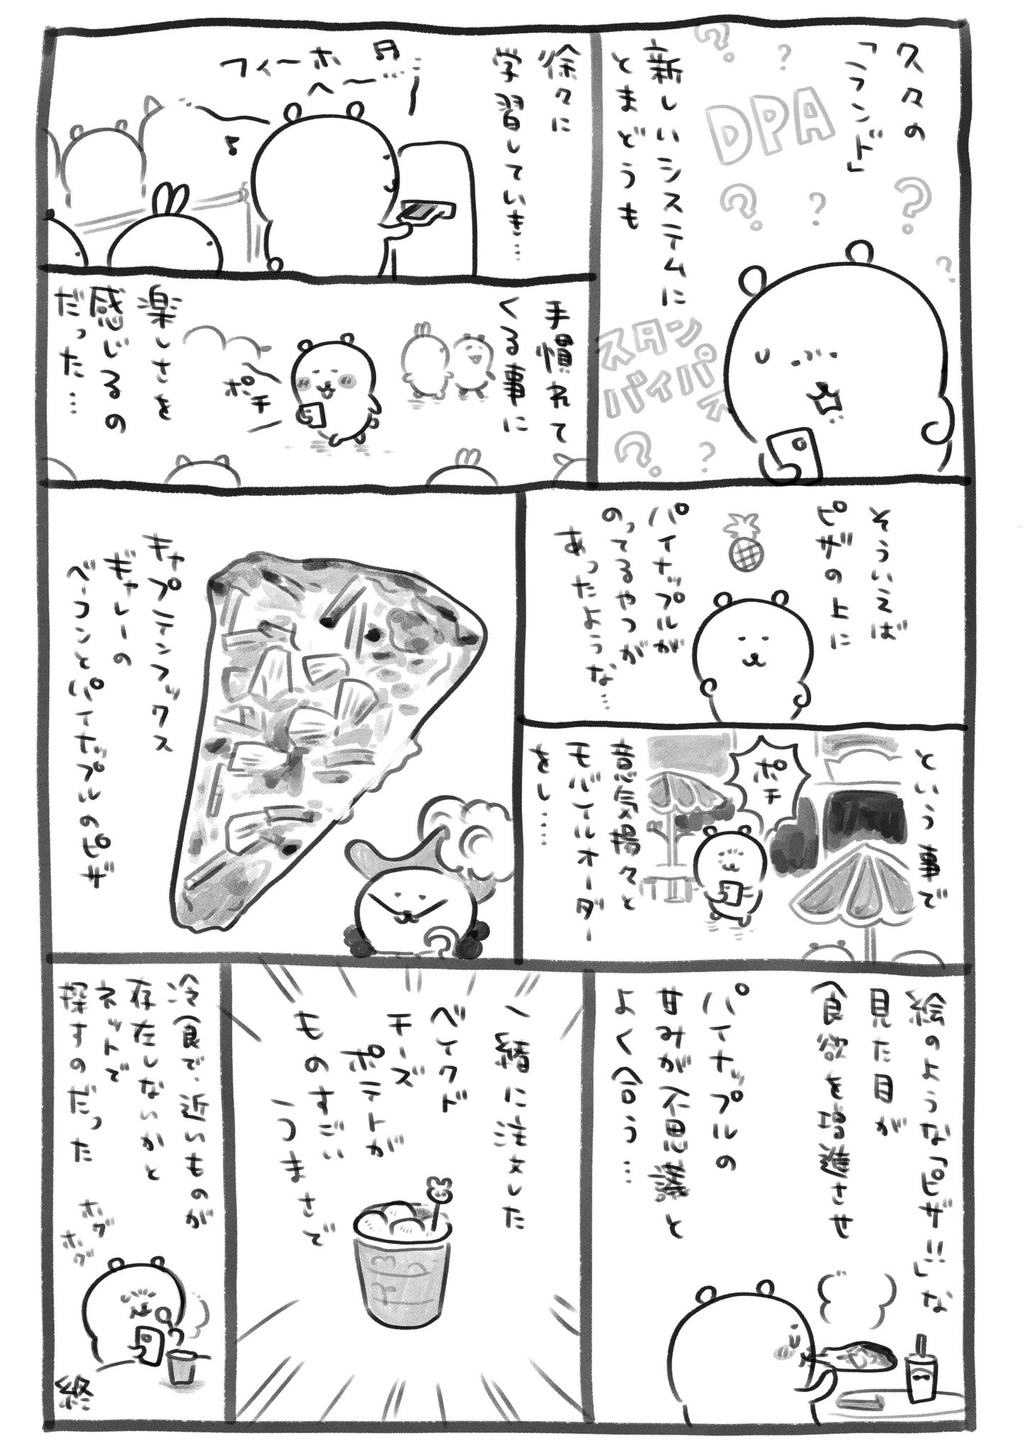 久々の
「ランド」
DPA
新しいシステムに
とまどうも
スタン
バイパ
ス
徐々に
学習していき…
フィーホ
へ〜…
手慣れて
くる事に
ポチ
楽しさを
感じるの
だった…
そういえば
ピザの上に
パイナップルが
のってるやつが
あったような…
という事で
ポチ
意気揚々と
モバイルオーダー
をし……
キャプテンフックス
ギャレーの
ベーコンとパイナップルのピザ
絵のような「ピザ!!」な
見た目が
食欲を増進させ
パイナップルの
甘みが不思議と
よく合う…
一緒に注文した
ベイクド
チーズ
ポテトが
ものすごい
うまさで
冷食で、近いものが
存在しないかと
ネットで
探すのだった
ホグ
ホグ
終